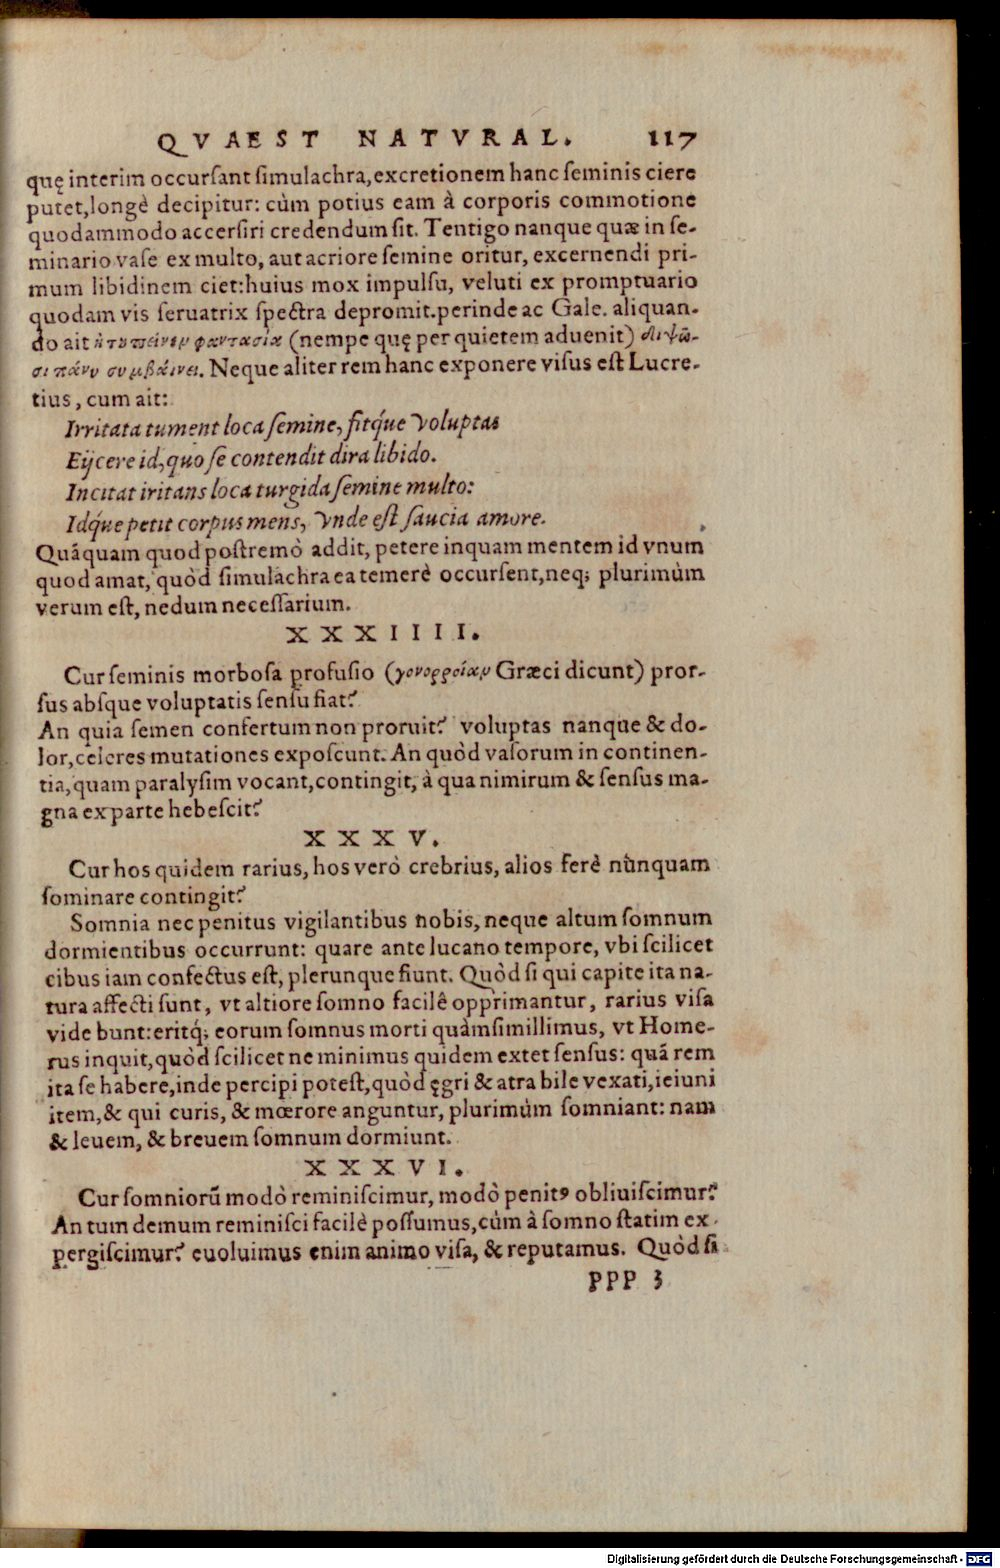 QVAEST NATVRAL. 117
quę interim occursant simulachra, excretionem hanc seminis ciere
putet, longè decipitur: cùm potius eam à corporis commotione
quodammodo accersiri credendum sit. Tentigo nanque quæ in se-
minario vase ex multo, aut acriore semine oritur, excernendi pri-
mum libidinem ciet: huius mox impulsu, veluti ex promptuario
quodam vis seruatrix spectra depromit. perinde ac Gale. aliquan-
do ait ἡ τοῦ πίνειν φαντασία (nempe quę per quietem aduenit) διψῶ-
σι πάνυ συμβαίνει. Neque aliter rem hanc exponere visus est Lucre-
tius, cum ait:
Irritata tument loca semine, fitq́ue voluptas
Eijcere id, quo se contendit dira libido.
Incitat iritans loca turgida semine multo:
Idq́ue petit corpus mens, vnde est saucia amore.
Quáquam quod postremò addit, petere inquam mentem id vnum
quod amat, quòd simulachra ea temerè occursent, neq; plurimùm
verum est, nedum necessarium.
XXXIIII.
Cur seminis morbosa profusio (γονοῤῥοίαν Græci dicunt) pror-
sus absque voluptatis sensu fiat?
An quia semen confertum non proruit? voluptas nanque & do-
lor, celeres mutationes exposcunt. An quòd vasorum in continen-
tia, quam paralysim vocant, contingit, à qua nimirum & sensus ma-
gna ex parte hebescit?
XXXV.
Cur hos quidem rarius, hos verò crebrius, alios ferè nũnquam
sominare contingit?
Somnia nec penitus vigilantibus nobis, neque altum somnum
dormientibus occurrunt: quare ante lucano tempore, vbi scilicet
cibus iam confectus est, plerunque fiunt. Quòd si qui capite ita na-
tura affecti sunt, vt altiore somno facilê opprimantur, rarius visa
vide bunt: eritq́; eorum somnus morti quàm simillimus, vt Home-
rus inquit, quòd scilicet ne minimus quidem extet sensus: quã rem
ita se habere, inde percipi potest, quòd ęgri & atra bile vexati, ieiuni
item, & qui curis, & mœrore anguntur, plurimùm somniant: nam
& leuem, & breuem somnum dormiunt.
XXXVI.
Cur somniorũ modò reminiscimur, modò penitꝰ obliuiscimur?
An tum demum reminisci facilè possumus, cùm à somno statim ex-
pergiscimur? euoluimus enim animo visa, & reputamus. Quòd si
PPP 3
Digitalisierung gefördert durch die Deutsche Forschungsgemeinschaft - DFG